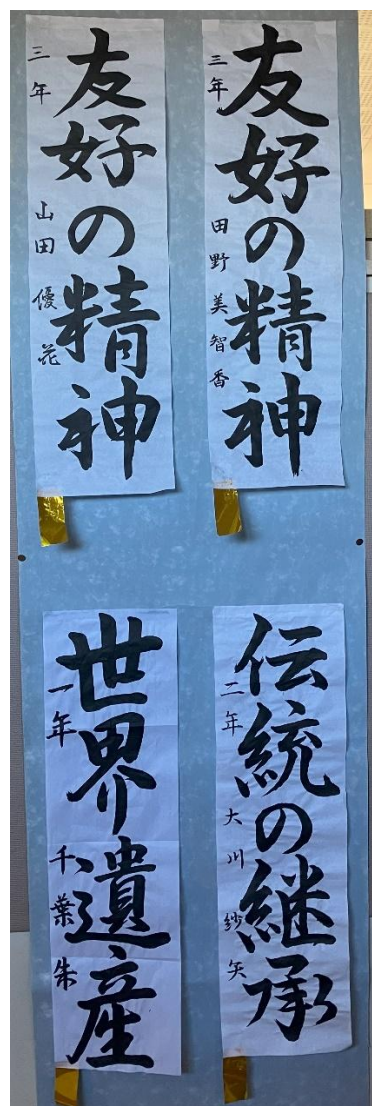 友好の精神
三年 田野美智香
友好の精神
三年 山田優花
伝統の継承
二年 大川紗矢
世界遺産
一年 千葉朱